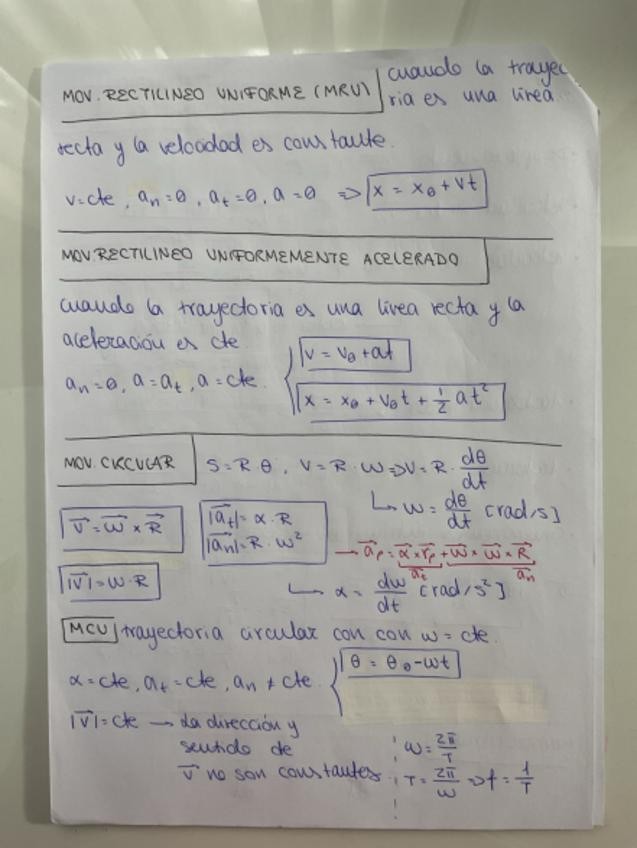 MOV. RECTILINEO UNIFORME (MRU) cuando la trayec
ria es una linea
recta y la velocidad es constante.
v=cte, aₙ=0, aₜ=0, a=0 => x = x₀ + vt
MOV. RECTILINEO UNIFORMEMENTE ACELERADO
cuando la trayectoria es una linea recta y la
aceleración es cte.
v = v₀ + at
aₙ=0, a=aₜ, a=cte.
x = x₀ + v₀t + ½ at²
MOV. CIRCULAR S = R·θ, V = R·ω => V = R · dθ/dt
↳ ω = dθ/dt [rad/s]
v⃗ = ω⃗ × R⃗
|a⃗ₜ| = α·R
|a⃗ₙ| = R·ω²
→ a⃗ₚ = α⃗ × r⃗ₚ + ω⃗ × ω⃗ × R⃗
a⃗ₜ a⃗ₙ
|v⃗| = ω·R
↳ α = dω/dt [rad/s²]
MCU trayectoria circular con con ω = cte.
θ = θ₀ - ωt
α = cte, aₜ = cte, aₙ ≠ cte.
|v⃗| = cte → La dirección y
sentido de
v⃗ no son constantes.
ω = 2π/T
T = 2π/ω => f = 1/T